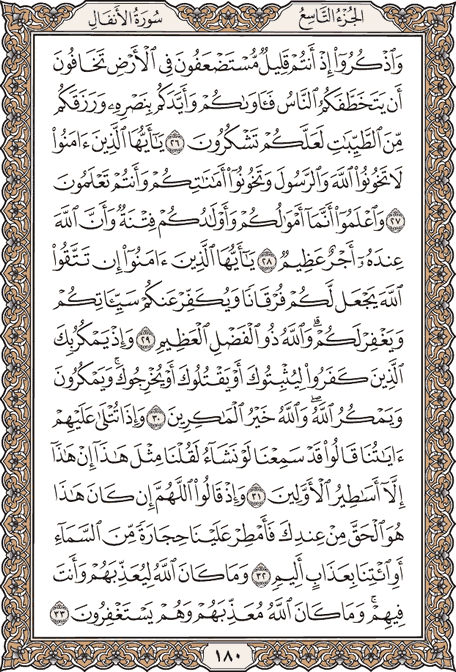 الجزء التاسع
سورة الأنفال
وَاذْكُرُوٓا۟ إِذْ أَنتُمْ قَلِيلٌ مُّسْتَضْعَفُونَ فِى الْأَرْضِ تَخَافُونَ
أَن يَتَخَطَّفَكُمُ النَّاسُ فَـَٔاوَىٰكُمْ وَأَيَّدَكُم بِنَصْرِهِۦ وَرَزَقَكُم
مِّنَ الطَّيِّبَٰتِ لَعَلَّكُمْ تَشْكُرُونَ ٢٦ يَٰٓأَيُّهَا الَّذِينَ ءَامَنُوا۟
لَا تَخُونُوا۟ اللَّهَ وَالرَّسُولَ وَتَخُونُوٓا۟ أَمَٰنَٰتِكُمْ وَأَنتُمْ تَعْلَمُونَ
٢٧ وَاعْلَمُوٓا۟ أَنَّمَآ أَمْوَٰلُكُمْ وَأَوْلَٰدُكُمْ فِتْنَةٌ وَأَنَّ اللَّهَ
عِندَهُۥٓ أَجْرٌ عَظِيمٌ ٢٨ يَٰٓأَيُّهَا الَّذِينَ ءَامَنُوٓا۟ إِن تَتَّقُوا۟
اللَّهَ يَجْعَل لَّكُمْ فُرْقَانًا وَيُكَفِّرْ عَنكُمْ سَيِّـَٔاتِكُمْ
وَيَغْفِرْ لَكُمْ ۗ وَاللَّهُ ذُو الْفَضْلِ الْعَظِيمِ ٢٩ وَإِذْ يَمْكُرُ بِكَ
الَّذِينَ كَفَرُوا۟ لِيُثْبِتُوكَ أَوْ يَقْتُلُوكَ أَوْ يُخْرِجُوكَ ۚ وَيَمْكُرُونَ
وَيَمْكُرُ اللَّهُ ۖ وَاللَّهُ خَيْرُ الْمَٰكِرِينَ ٣٠ وَإِذَا تُتْلَىٰ عَلَيْهِمْ
ءَايَٰتُنَا قَالُوا۟ قَدْ سَمِعْنَا لَوْ نَشَآءُ لَقُلْنَا مِثْلَ هَٰذَآ إِنْ هَٰذَآ
إِلَّآ أَسَٰطِيرُ الْأَوَّلِينَ ٣١ وَإِذْ قَالُوا۟ اللَّهُمَّ إِن كَانَ هَٰذَا
هُوَ الْحَقَّ مِنْ عِندِكَ فَأَمْطِرْ عَلَيْنَا حِجَارَةً مِّنَ السَّمَآءِ
أَوِ ائْتِنَا بِعَذَابٍ أَلِيمٍ ٣٢ وَمَا كَانَ اللَّهُ لِيُعَذِّبَهُمْ وَأَنتَ
فِيهِمْ ۚ وَمَا كَانَ اللَّهُ مُعَذِّبَهُمْ وَهُمْ يَسْتَغْفِرُونَ ٣٣
١٨٠